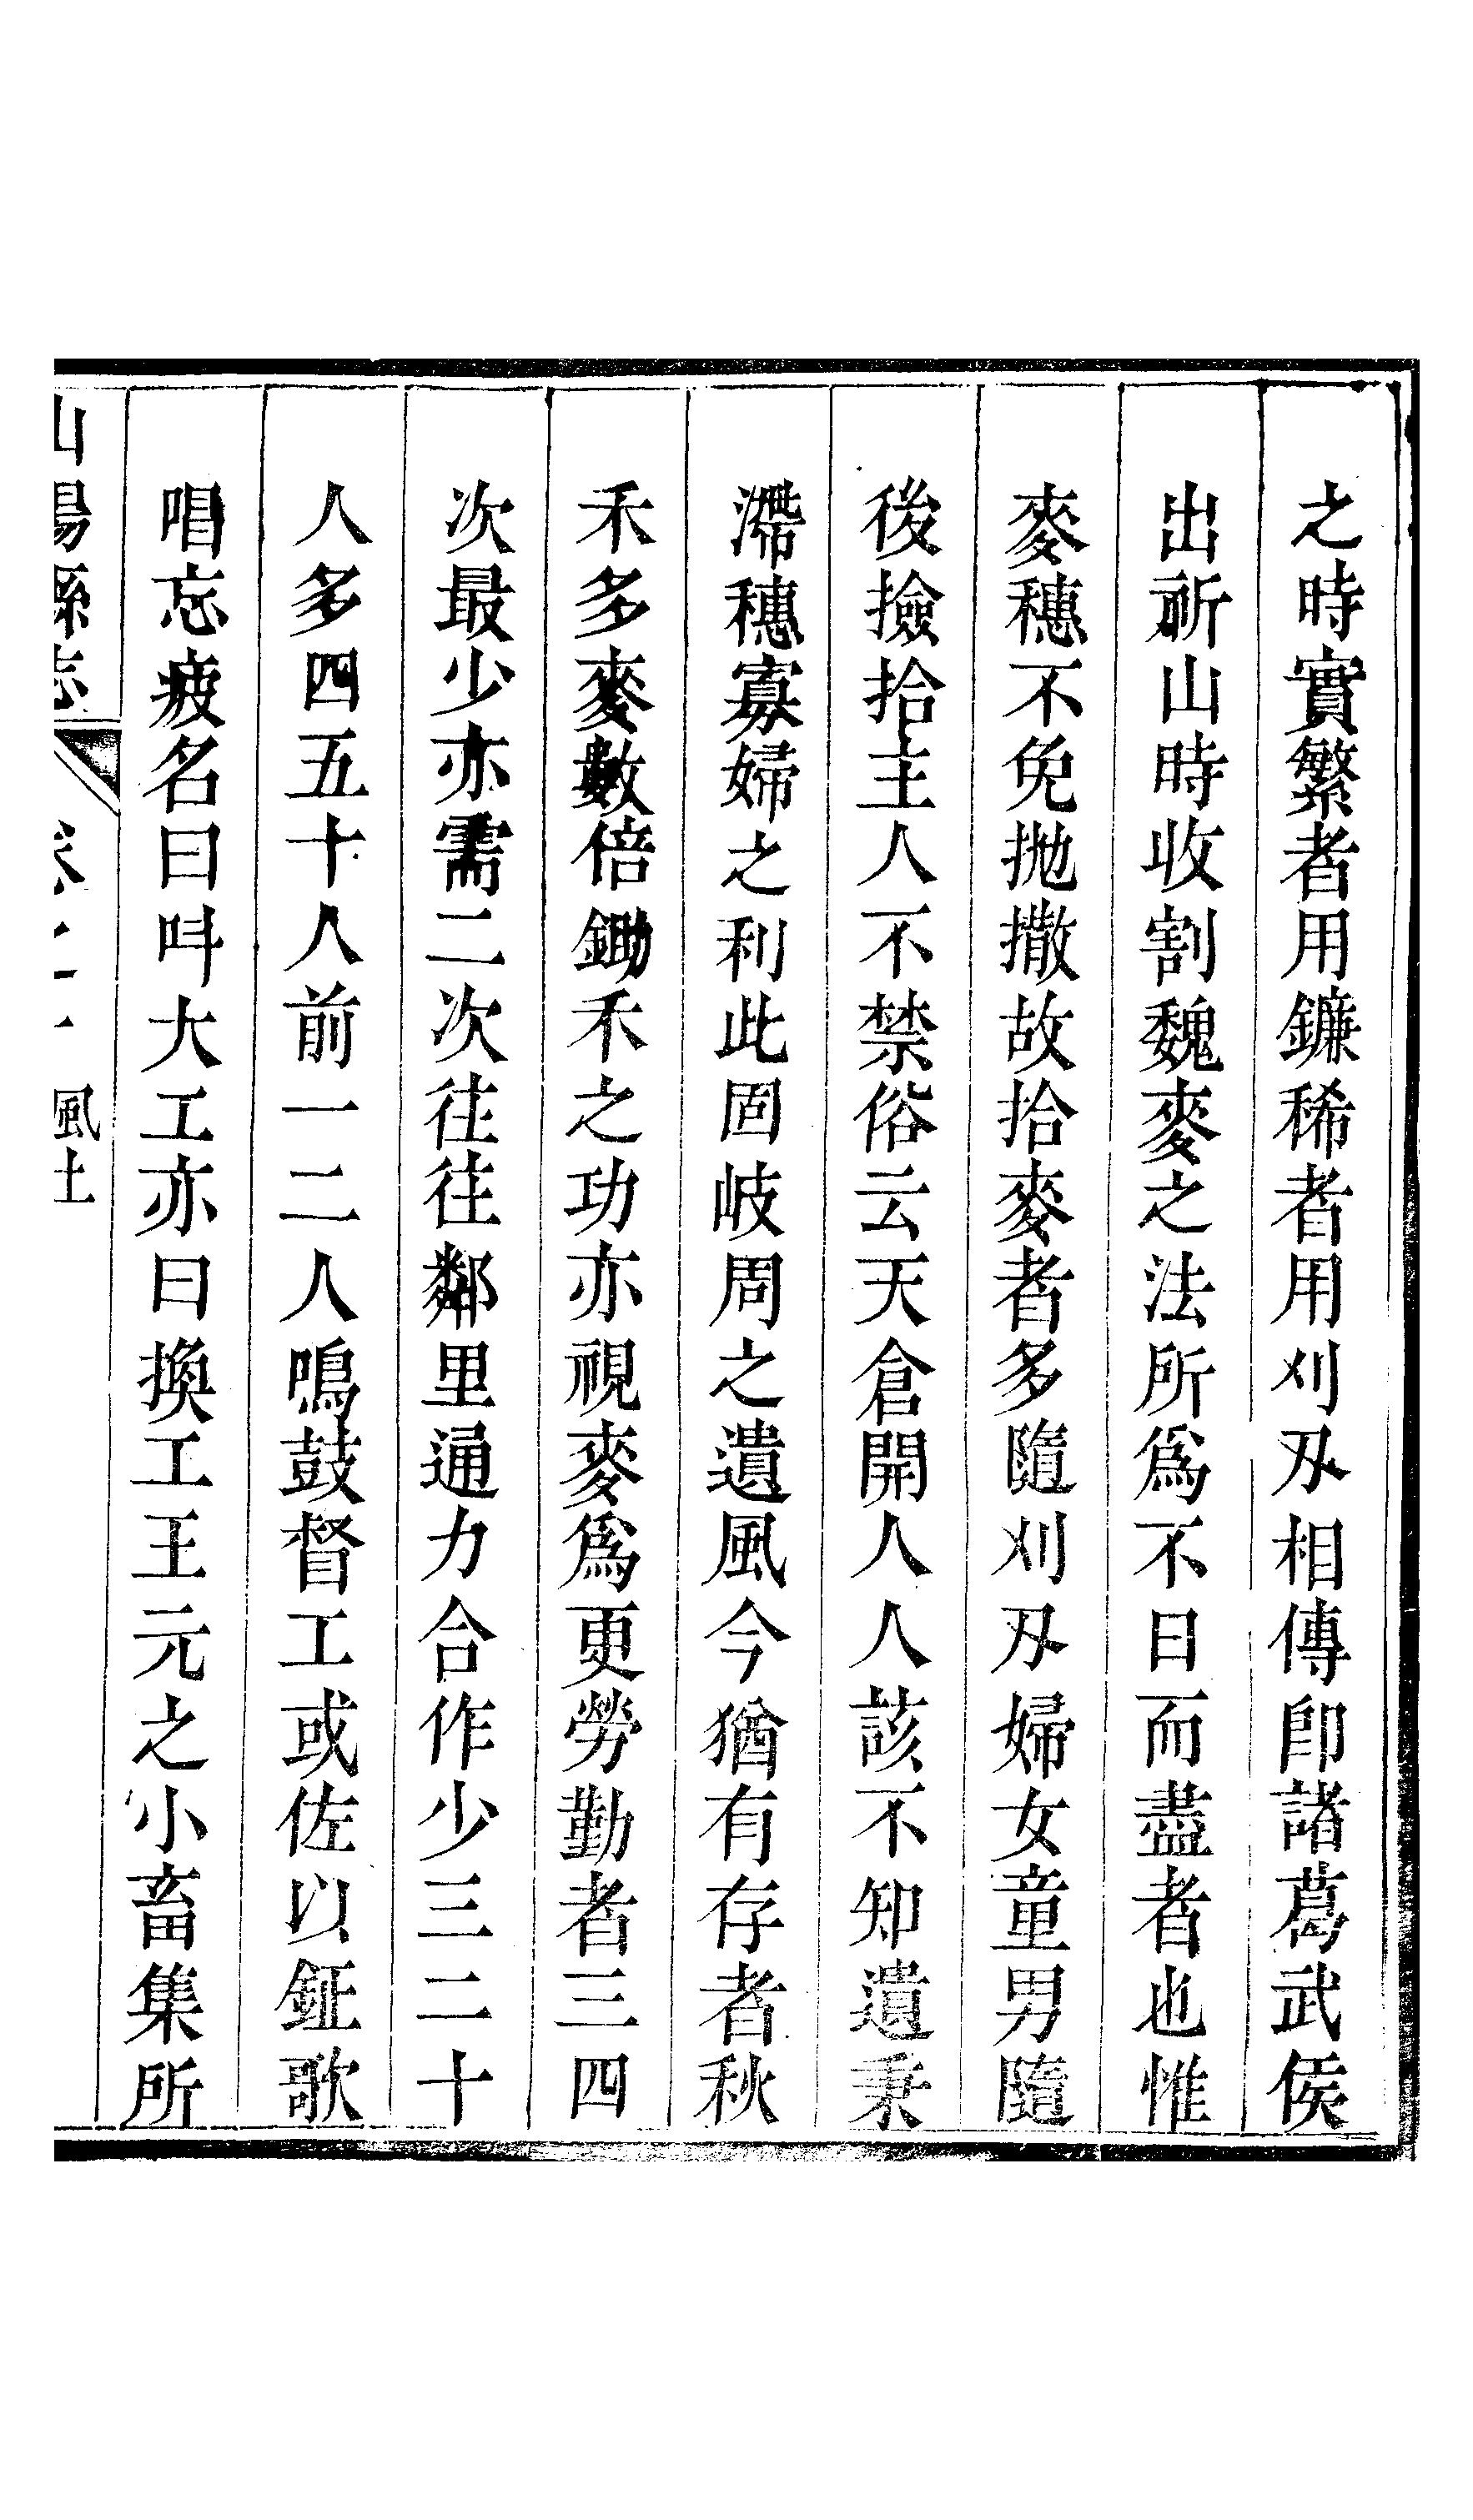 之時實繁者用鐮稀者用刈刄相傳卽諸葛武侯
出祈山時收割魏麥之法所爲不日而盡者也惟
麥穗不免抛撒故拾麥者多隨刈刄婦女童男隨
後撿拾主人不禁俗云天倉開人人該不知遺秉
滯穗寡婦之利此固岐周之遺風今猶有存者秋
禾多麥數倍鋤禾之功亦視麥爲更勞勤者三四
次最少亦需二次徃徃鄰里通力合作少三二十
人多四五十人前一二人鳴鼓督工或佐以鉦歌
唱忘疲名曰呌大工亦曰換工王元之小畜集所
山陽縣志 風土